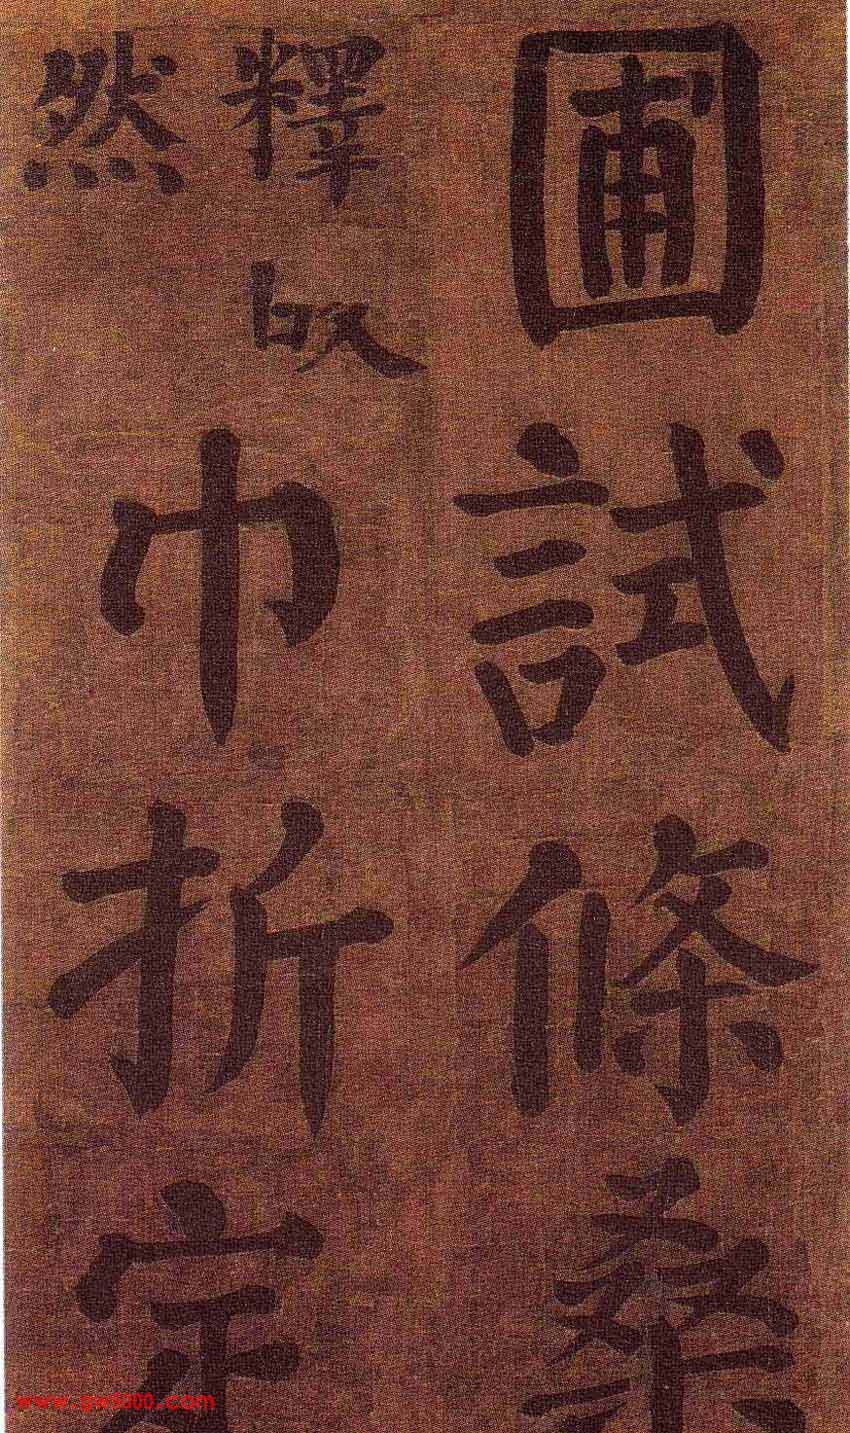 圃試條桑
釋
然
巾折定
www.gw5000.com